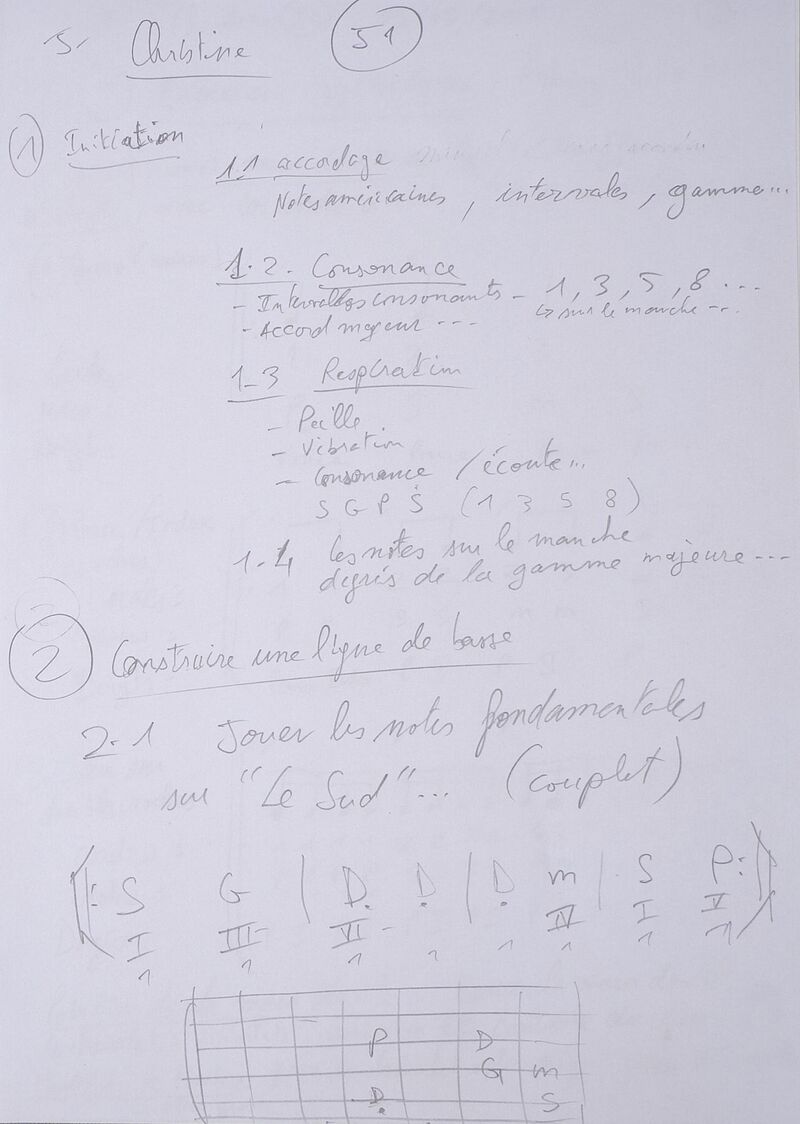 Christine 51
1 Initiation
1.1 accordage
Notes américaines, intervales, gamme...
1.2. Consonance
- Intervalles consonants - 1, 3, 5, 8 ...
↳ sur le manche...
- Accord majeur ...
1-3 Respiration
- Vibration
- Consonance / écoute...
S G P Ṡ (1 3 5 8)
1-4 les notes sur le manche
degrés de la gamme majeure...
2 Construire une ligne de basse
2-1 Jouer les notes fondamentales
sur "Le Sud"... (couplet)
‖: S G | Ḍ Ḍ | Ḍ m | S P :‖
I III- VI- IV I V
1 1 1 1 1 1 1 1
P D
G m
Ḍ S